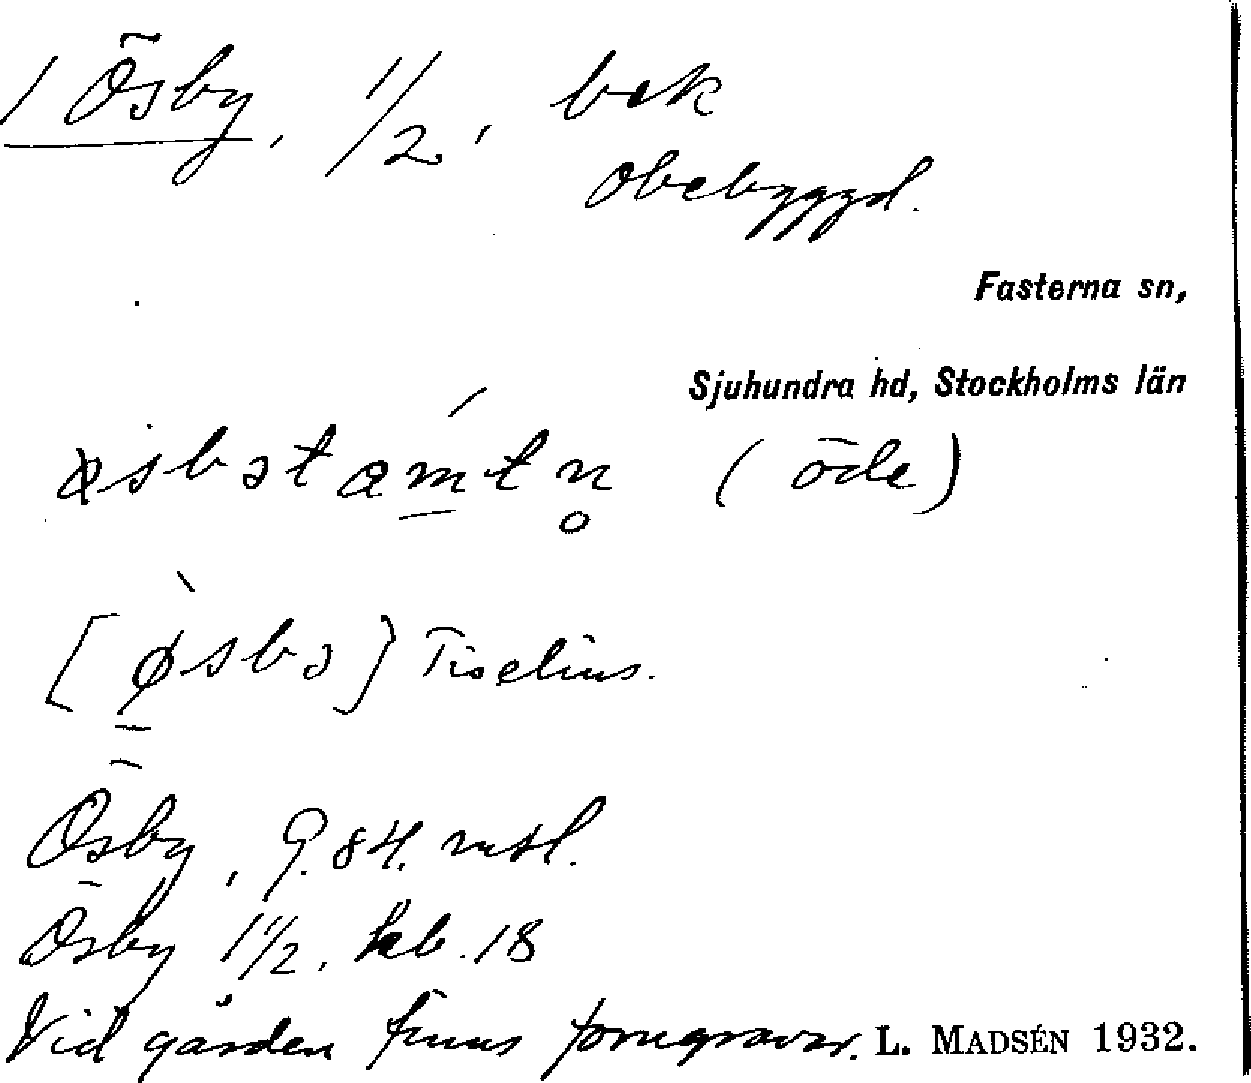 1 Ösby, 1/2, bek
obebyggd.
Fasterna sn,
Sjuhundra hd, Stockholms län
øsbətòmtn̥ (öde)
[ø̀sbə] Tiselius.
Ösby, 9.84. mtl.
Ösby 1 1/2. kb. 18
Vid gården finns forngravar. L. MADSÉN 1932.